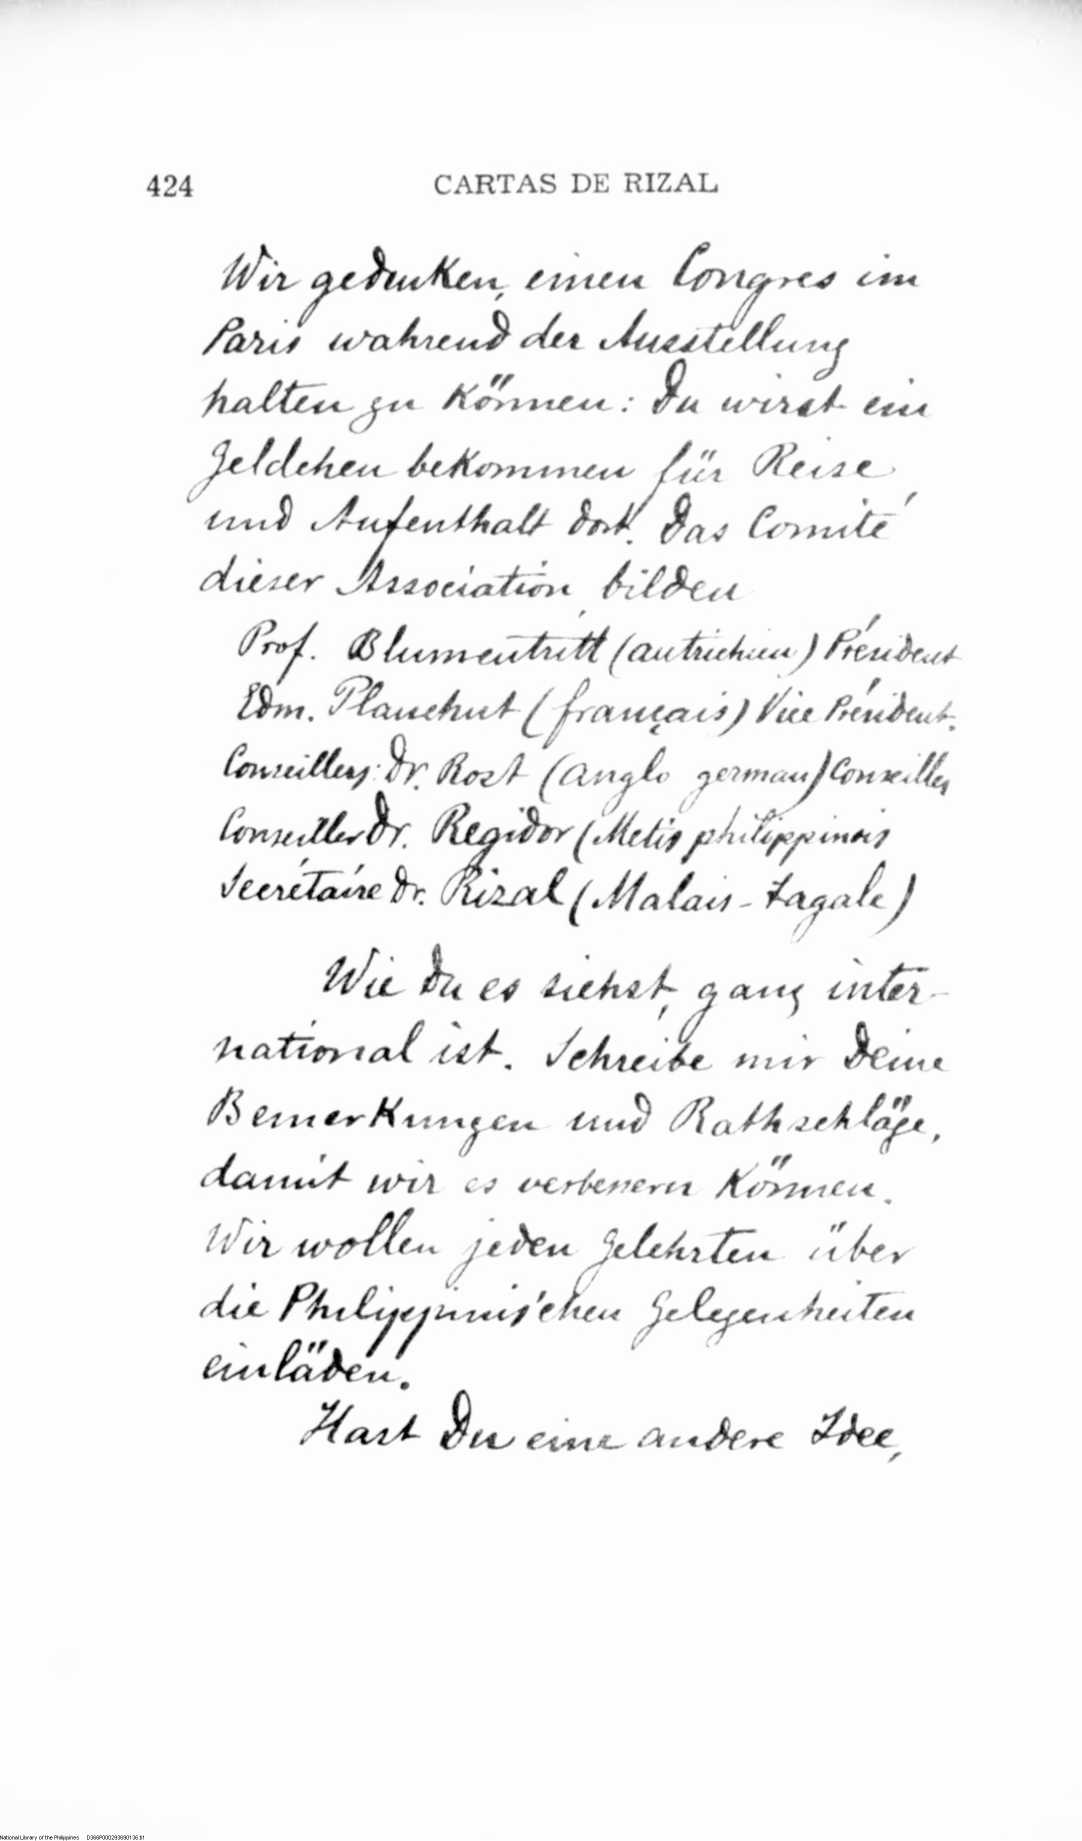 424 CARTAS DE RIZAL
Wir gedenken, einen Congres im
Paris wahrend der Ausstellung
halten zu können: Du wirst ein
Geldchen bekommen für Reise
und Aufenthalt dort. Das Comité
dieser Association bilden
Prof. Blumentritt (autrichien) Président
Edm. Plauchut (français) Vice Président.
Conseillers: Dr. Rost (anglo german) Conseiller
Conseiller Dr. Regidor (Metis philippinois
Secrétaire Dr. Rizal (Malais-Tagale)
Wie Du es siehst, ganz inter-
national ist. Schreibe mir Deine
Bemerkungen und Rathschläge,
damit wir es verbessern können.
Wir wollen jeden Gelehrten über
die Philippinischen Gelegenheiten
einläden.
Hast Du eine andere Idee,
National Library of the Philippines D366P000293690136.tif